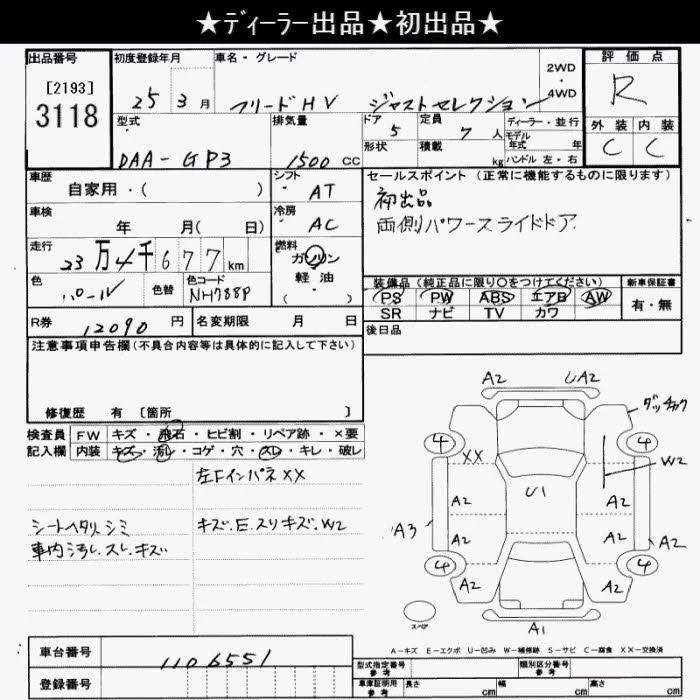 ★ディーラー出品★初出品★
出品番号
[2193]
3118
初度登録年月
25 3 月
車名・グレード
フリードHV ジャストセレクション
2WD
・
4WD
評価点
R
外装 内装
C C
型式
DAA-GP3
排気量
1500 CC
ドア 5
形状
定員 7 人
積載 kg
ディーラー・並行
モデル
年式 年
ハンドル 左・右
車歴
自家用・( )
シフト
AT
車検
年 月( 日)
冷房
AC
走行
23万4千677km
燃料
ガソリン
軽油
( )
色
パール
色替
色コード
NH788P
R券 12090 円
名変期限 月 日
セールスポイント(正常に機能するものに限ります)
初出品
両側パワースライドドア.
装備品(純正品に限り○をつけてください)
PS PW ABS エアB AW
SR ナビ TV カワ
新車保証書
有・無
後日品
注意事項申告欄(不具合内容等は具体的に記入して下さい)
修復歴 有[箇所 ]
検査員
記入欄
FW キズ・飛石・ヒビ割・リペア跡・×要
内装 キズ・汚れ・コゲ・穴・スレ・キレ・破レ
左Fインパネ××
シートヘタリ シミ
キズ.E.スリキズ.W2
車内汚レ.スレ.キズ
A2 UA2
4 4
XX
W2
U1
A2 A2
A3
A2 A2
A2
4 4
A2 A2
A1
スペア
A-キズ E-エクボ U-凹み W-補修跡 S-サビ C-腐食 XX-交換済
車台番号
1106551
登録番号
型式指定番号
参考
類別区分番号
参考
車庫証明用
参考
長さ cm 幅 cm 高さ cm